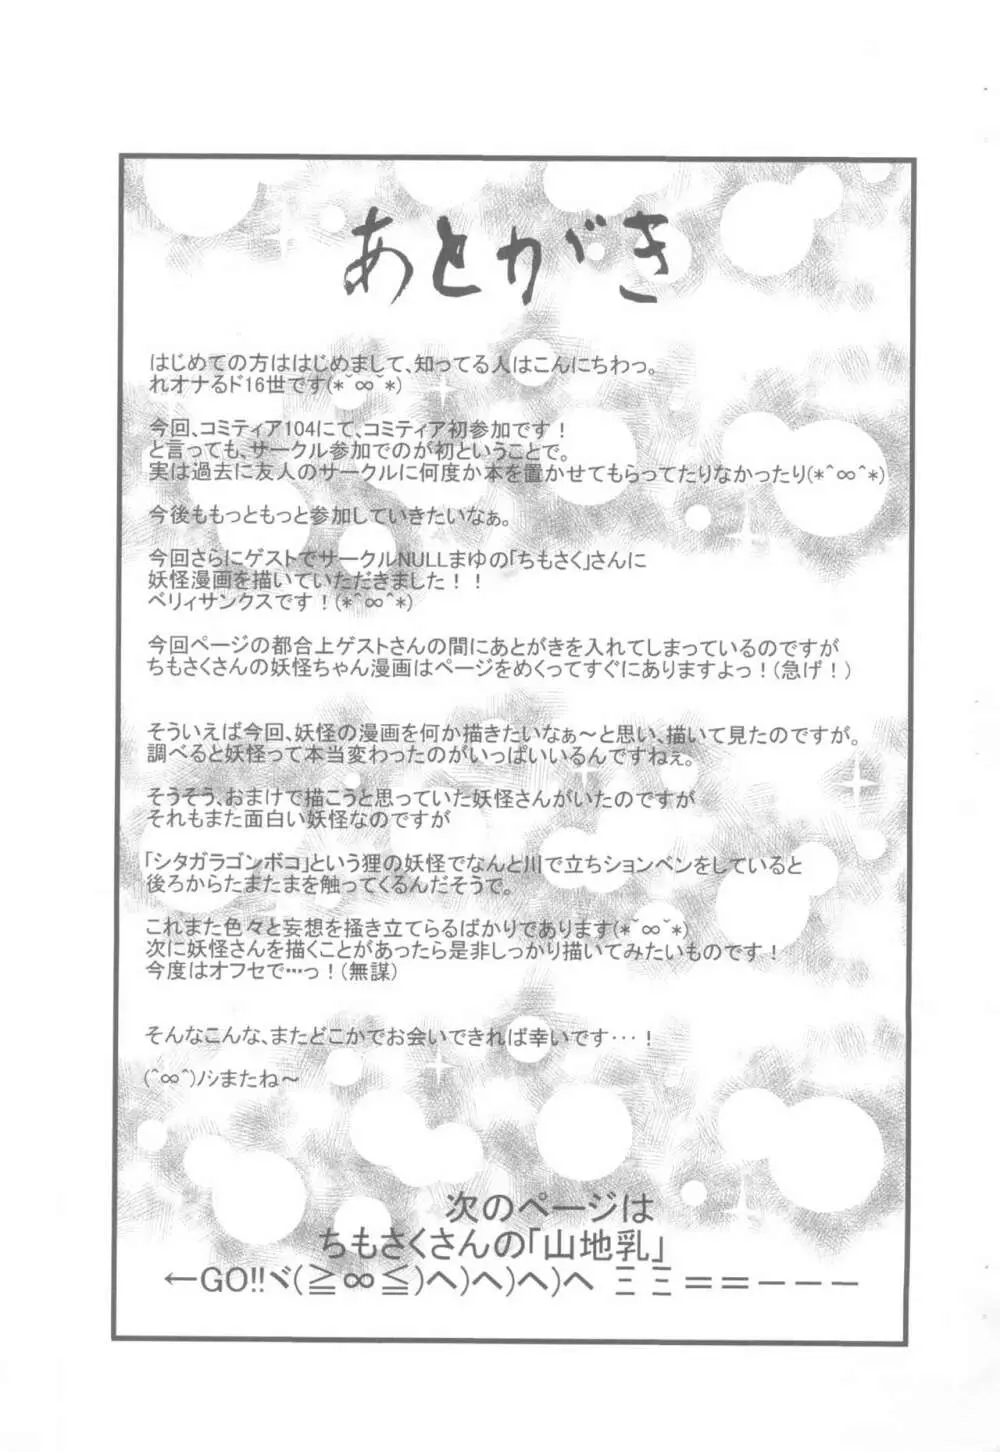 あとがき
はじめての方ははじめまして、知ってる人はこんにちわっ。
れオナるド16世です(*˘∞˘*)
今回、コミティア104にて、コミティア初参加です！
と言っても、サークル参加でのが初ということで。
実は過去に友人のサークルに何度か本を置かせてもらってたりなかったり(*^∞^*)
今後ももっともっと参加していきたいなぁ。
今回さらにゲストでサークルNULLまゆの「ちもさく」さんに
妖怪漫画を描いていただきました！！
ベリィサンクスです！(*^∞^*)
今回ページの都合上ゲストさんの間にあとがきを入れてしまっているのですが
ちもさくさんの妖怪ちゃん漫画はページをめくってすぐにありますよっ！(急げ！)
そういえば今回、妖怪の漫画を何か描きたいなぁ～と思い、描いて見たのですが。
調べると妖怪って本当変わったのがいっぱいいるんですねぇ。
そうそう、おまけで描こうと思っていた妖怪さんがいたのですが
それもまた面白い妖怪なのですが
「シタガラゴンボコ」という狸の妖怪でなんと川で立ちションベンをしていると
後ろからたまたまを触ってくるんだそうで。
これまた色々と妄想を掻き立てらるばかりであります(*˘∞˘*)
次に妖怪さんを描くことがあったら是非しっかり描いてみたいものです！
今度はオフセで…っ！(無謀)
そんなこんな、またどこかでお会いできれば幸いです･･･！
(^∞^)ﾉｼまたね～
次のページは
ちもさくさんの「山地乳」
←GO!!ヾ(≧∞≦)へ)へ)へ)へ ミミ＝＝－－－